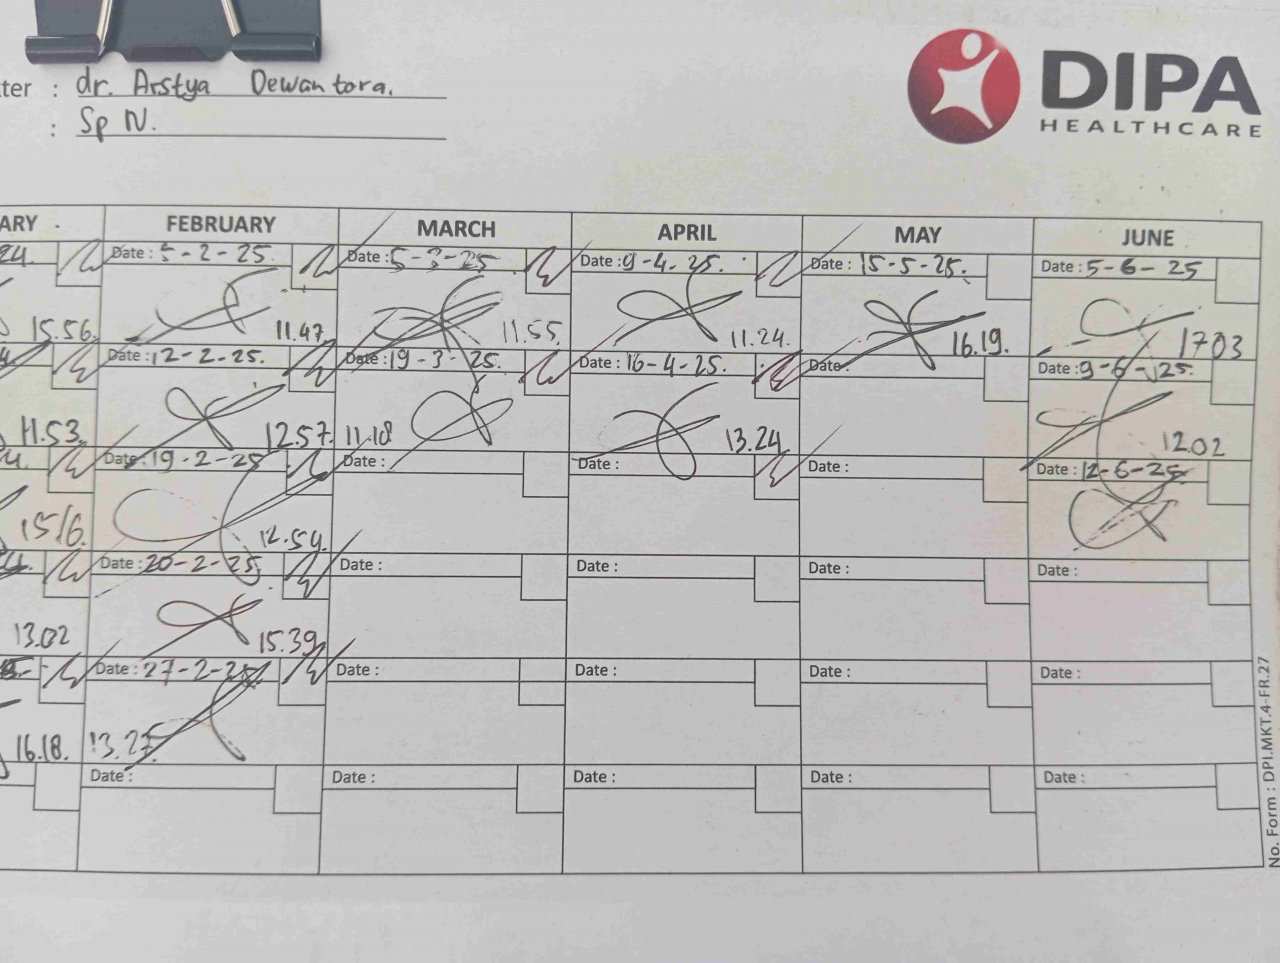 ter : dr. Arstya Dewantora.
: Sp N.
DIPA
HEALTHCARE
ARY FEBRUARY MARCH APRIL MAY JUNE
24. Date : 5-2-25. Date : 5-3-25 Date : 9-4-25. Date : 15-5-25. Date : 5-6-25
15.56. 11.47. 11.55. 11.24. 16.19. 1703
Date : 12-2-25. Date : 19-3-25. Date : 16-4-25. Date : Date : 9-6-25.
11.53. 12.57. 11.18 13.24. 12.02
Date : 19-2-25 Date : Date : Date : Date : 12-6-25
12.54.
Date : 20-2-25 Date : Date : Date : Date :
13.02 15.39
Date : 27-2-25 Date : Date : Date : Date :
16.18. 13.27
Date : Date : Date : Date : Date :
No. Form : DPI.MKT.4-FR.27